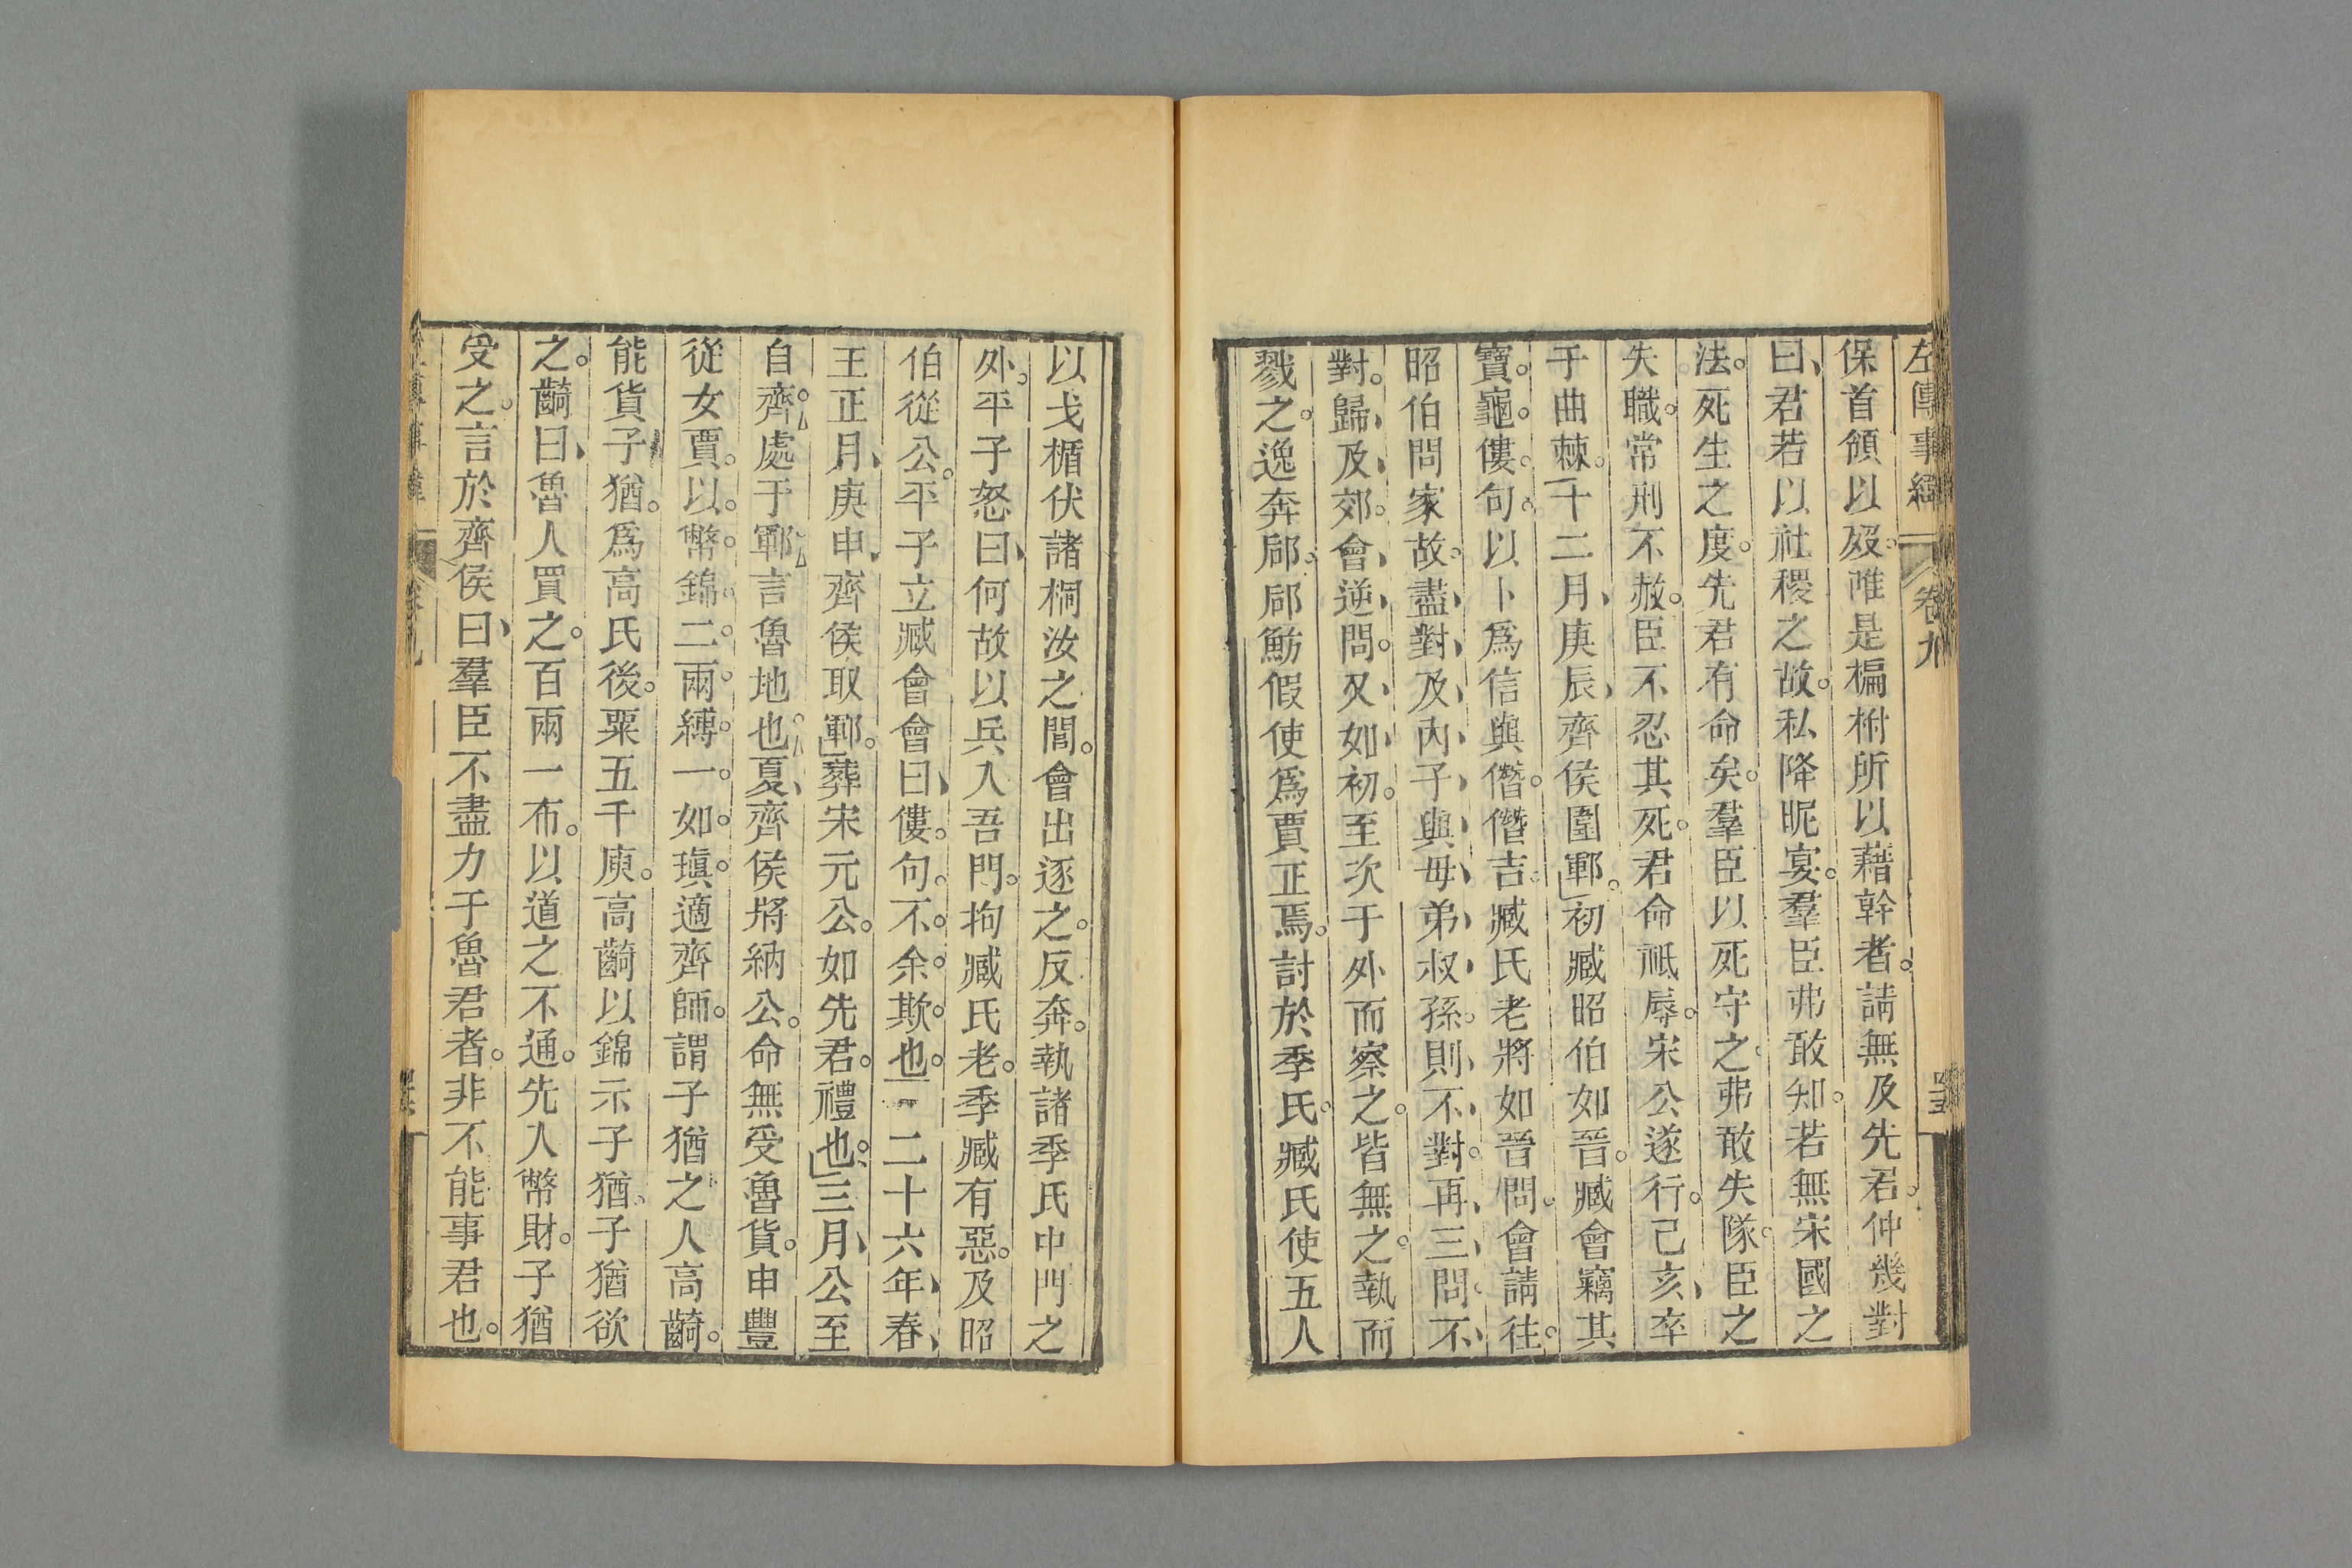 左傳事緯 卷九
保首領以歿。唯是楄柎所以藉幹者。請無及先君。仲幾對
曰、君若以社稷之故。私降昵宴。羣臣弗敢知。若無宋國之
法。死生之度。先君有命矣。羣臣以死守之。弗敢失隊。臣之
失職。常刑不赦。臣不忍其死。君命祗辱。宋公遂行。己亥、卒
于曲棘。十二月、庚辰、齊侯圍鄆。初臧昭伯如晉。臧會竊其
寶。龜。僂。句。以卜爲信與僭。僭吉。臧氏老將如晉問。會請往。
昭伯問家故。盡、對、及、內、子、與、母、弟、叔、孫。則、不、對。再、三、問。不、
對。歸、及、郊。會、逆、問。又、如、初。至次于外而察之。皆無之。執而
戮之。逸奔郈。郈魴假使爲賈正焉。討於季氏。臧氏使五人
以戈楯伏諸桐汝之閭。會出逐之。反奔。執諸季氏中門之
外。平子怒曰、何故以兵入吾門。拘臧氏老。季臧有惡。及昭
伯從公。平子立臧會會曰、僂。句。不。余。欺。也。二十六年、春、
王正月、庚申、齊侯取鄆。葬宋元公。如先君。禮也。三月、公至
自齊。處于鄆。言魯地也。夏、齊侯將納公。命無受魯貨。申豐
從女賈。以。幣。錦。二。兩。縛。一。如。瑱。適齊師。謂子猶之人高齮。
能貨子猶。爲高氏後。粟五千庾。高齮以錦示子猶。子猶欲
之。齮曰、魯人買之。百兩一布。以道之不通。先入幣財。子猶
受之。言於齊侯曰、羣臣不盡力于魯君者。非不能事君也。